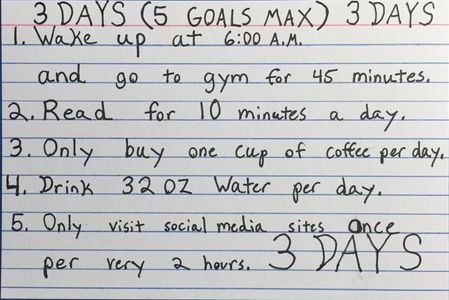 3 DAYS (5 GOALS MAX) 3 DAYS
1. Wake up at 6:00 A.M.
and go to gym for 45 minutes.
2. Read for 10 minutes a day.
3. Only buy one cup of coffee per day.
4. Drink 32 OZ Water per day.
5. Only visit social media sites once
per very 2 hours. 3 DAYS